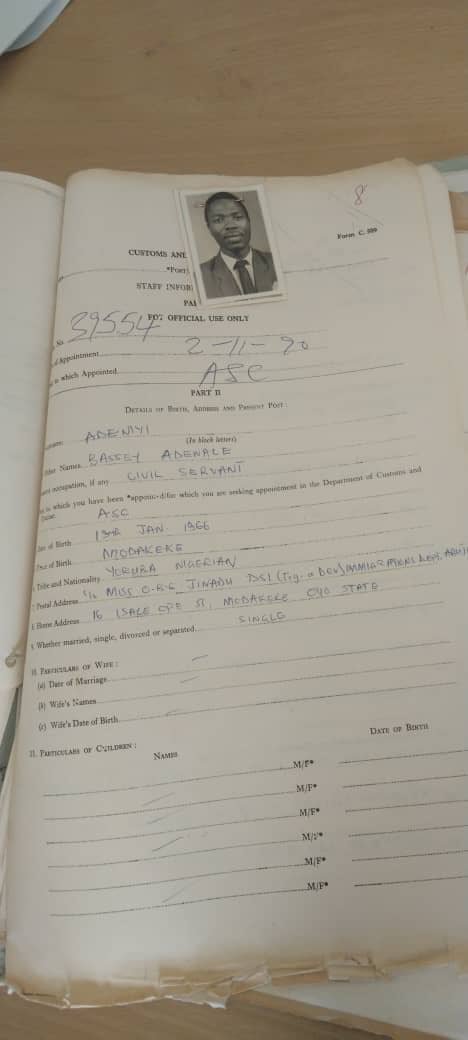 8
Form C. 599
CUSTOMS AND
*Post)
STAFF INFOR
PAR
FOR OFFICIAL USE ONLY
No. 39554
of Appointment 2-11-90
to which Appointed ASC
PART II
DETAILS OF BIRTH, ADDRESS AND PRESENT POST
Surname: ADENIYI
(In block letters)
Other Names BASSEY ADEWALE
occupation, if any CIVIL SERVANT
to which you have been *appointed/for which you are seeking appointment in the Department of Customs and
Excise ASC
Date of Birth 13TH JAN 1966
Place of Birth MODAKEKE
Tribe and Nationality YORUBA NIGERIAN
Postal Address c/o MISS O.R.G JINADU DSI (Trg. & Dev) IMMIGRATIONS DEPT. ABUJ
Home Address 16 ISALE OPE ST, MODAKEKE OYO STATE
Whether married, single, divorced or separated SINGLE
10. PARTICULARS OF WIFE :
(a) Date of Marriage
(b) Wife's Names
(c) Wife's Date of Birth
11. PARTICULARS OF CHILDREN :
NAMES DATE OF BIRTH
M/F*
M/F*
M/F*
M/F*
M/F*
M/F*